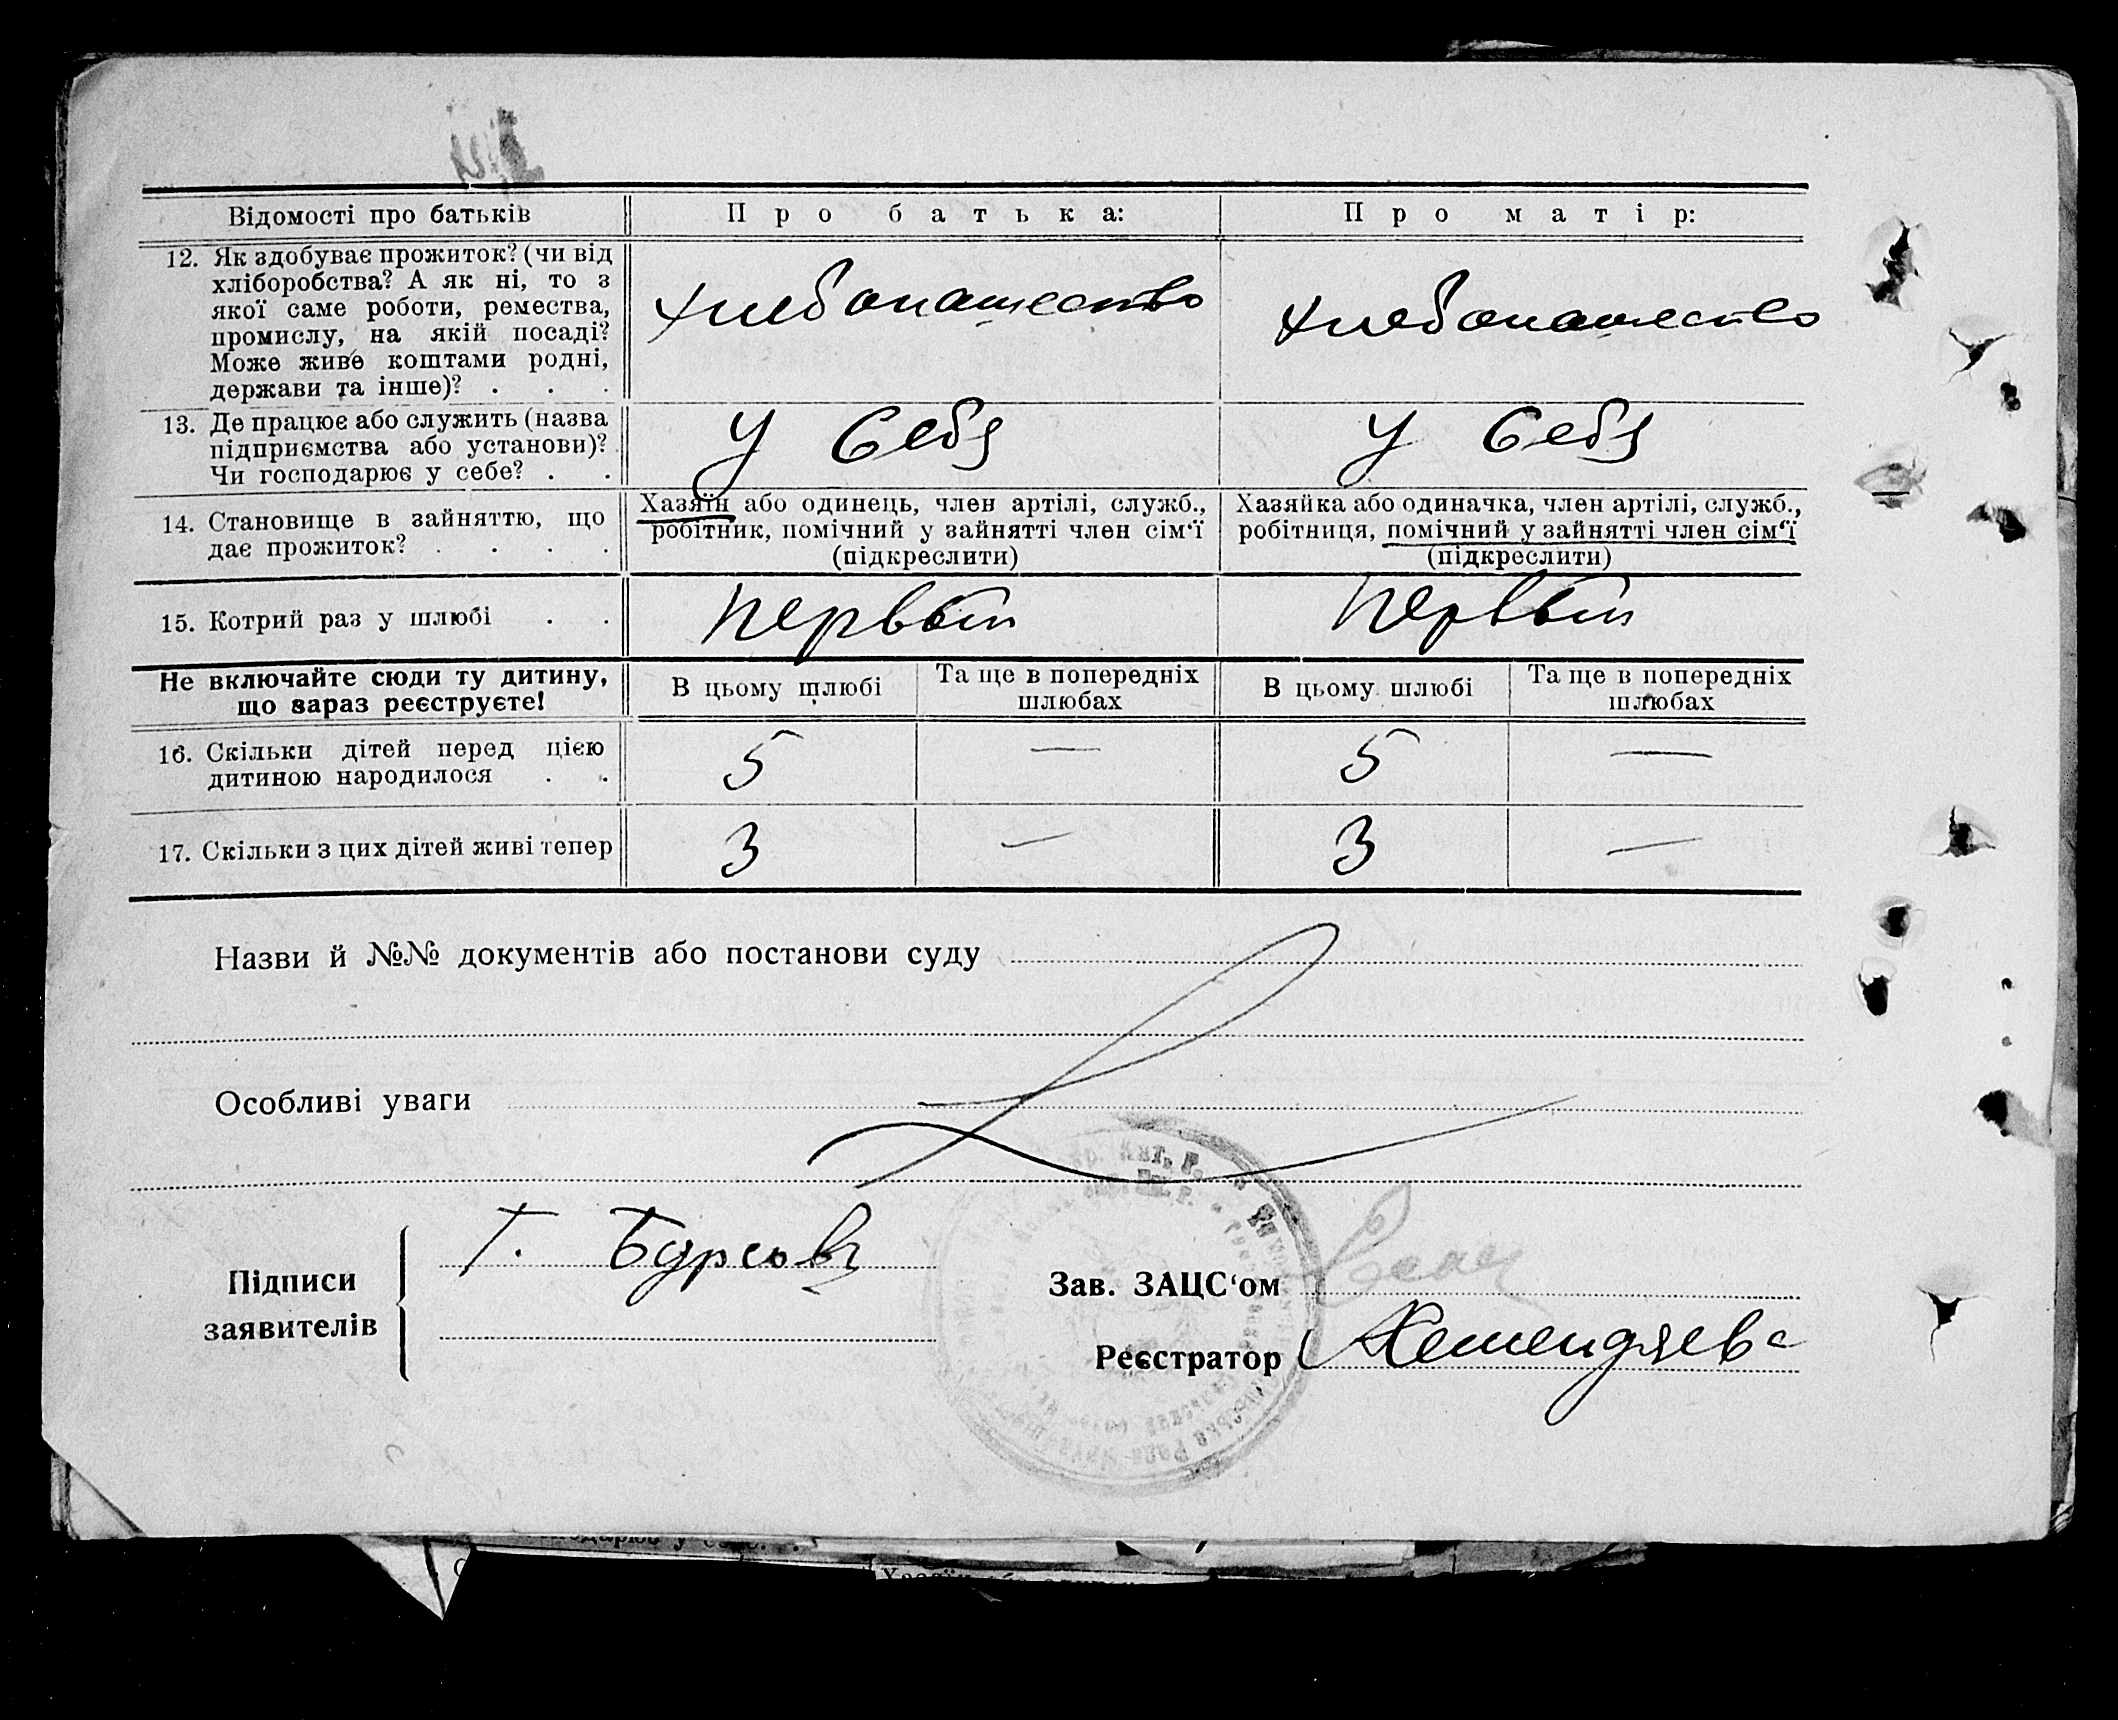 Відомості про батьків
Про батька:
Про матір:
12. Як здобуває прожиток? (чи від
хліборобства? А як ні, то з
якої саме роботи, ремества,
промислу, на якій посаді?
Може живе коштами родні,
держави та інше)? . . .
хлебопашество
хлебопашество
13. Де працює або служить (назва
підприємства або установи)?
Чи господарює у себе? . .
у себя
у себя
14. Становище в зайняттю, що
дає прожиток? . . . .
Хазяїн або одинець, член артілі, служб.,
робітник, помічний у зайнятті член сім‘ї
(підкреслити)
Хазяйка або одиначка, член артілі, служб.,
робітниця, помічний у зайнятті член сім‘ї
(підкреслити)
15. Котрий раз у шлюбі . .
первый
первый
Не включайте сюди ту дитину,
що зараз реєструєте!
В цьому шлюбі
Та ще в попередніх
шлюбах
В цьому шлюбі
Та ще в попередніх
шлюбах
16. Скільки дітей перед цією
дитиною народилося . .
5 —
5 —
17. Скільки з цих дітей живі тепер
3 —
3 —
Назви й №№ документів або постанови суду
Особливі уваги
Підписи
заявителів
Г. Бурсовъ
Зав. ЗАЦС‘ом
Реєстратор